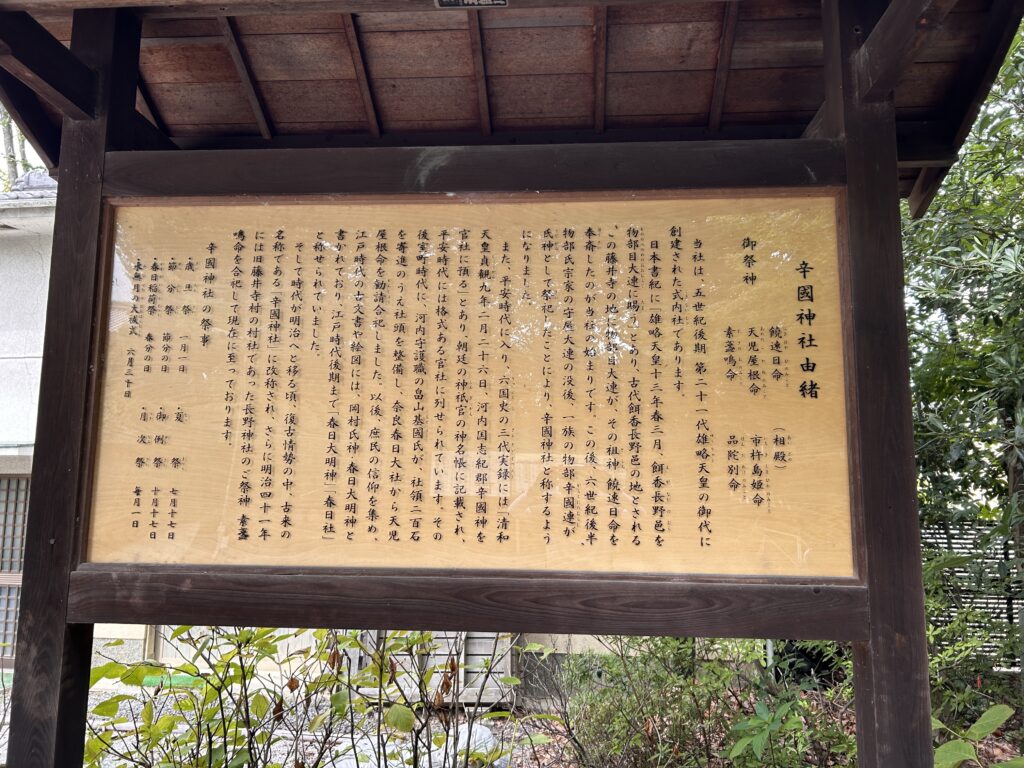 辛國神社由緒
御祭神
饒速日命
天児屋根命
素盞鳴命
(相殿)
市杵島姫命
品陀別命
当社は、五世紀後期 第二十一代雄略天皇の御代に
創建された式内社であります。
日本書紀に「雄略天皇十三年春三月、餌香長野邑を
物部目大連に賜う」とあり、古代餌香長野邑の地とされる
この藤井寺の地に物部目大連が、その祖神饒速日命を
奉斎したのが当社の始まりです。この後、六世紀後半、
物部氏宗家の守屋大連の没後、一族の物部辛國連が、
氏神として祭祀したことにより、辛國神社と称するよう
になりました。
また、平安時代に入り、六国史の三代実録には「清和
天皇貞観九年二月二十六日、河内国志紀郡辛國神を
官社に預る」とあり、朝廷の神祇官の神名帳に記載され、
平安時代には格式ある官社に列せられています。その
後室町時代に、河内守護職の畠山基國氏が、社領二百石
を寄進のうえ社頭を整備し、奈良春日大社から天児
屋根命を勧請合祀しました。以後、庶民の信仰を集め、
江戸時代の古文書や絵図には、岡村氏神 春日大明神と
書かれており、江戸時代後期まで「春日大明神」「春日社」
と称せられていました。
そして時代が明治へと移る頃、復古情勢の中、古来の
名称である「辛國神社」に改称され、さらに明治四十一年
には旧藤井寺村の村社であった長野神社のご祭神 素盞
鳴命を合祀して現在に至っております。
辛國神社の祭事
・歳旦祭 一月一日
・節分祭 節分の日
・春日稲荷祭 春分の日
・水無月の大祓式 六月三十日
・夏祭 七月十七日
・御例祭 十月十七日
・月次祭 毎月一日